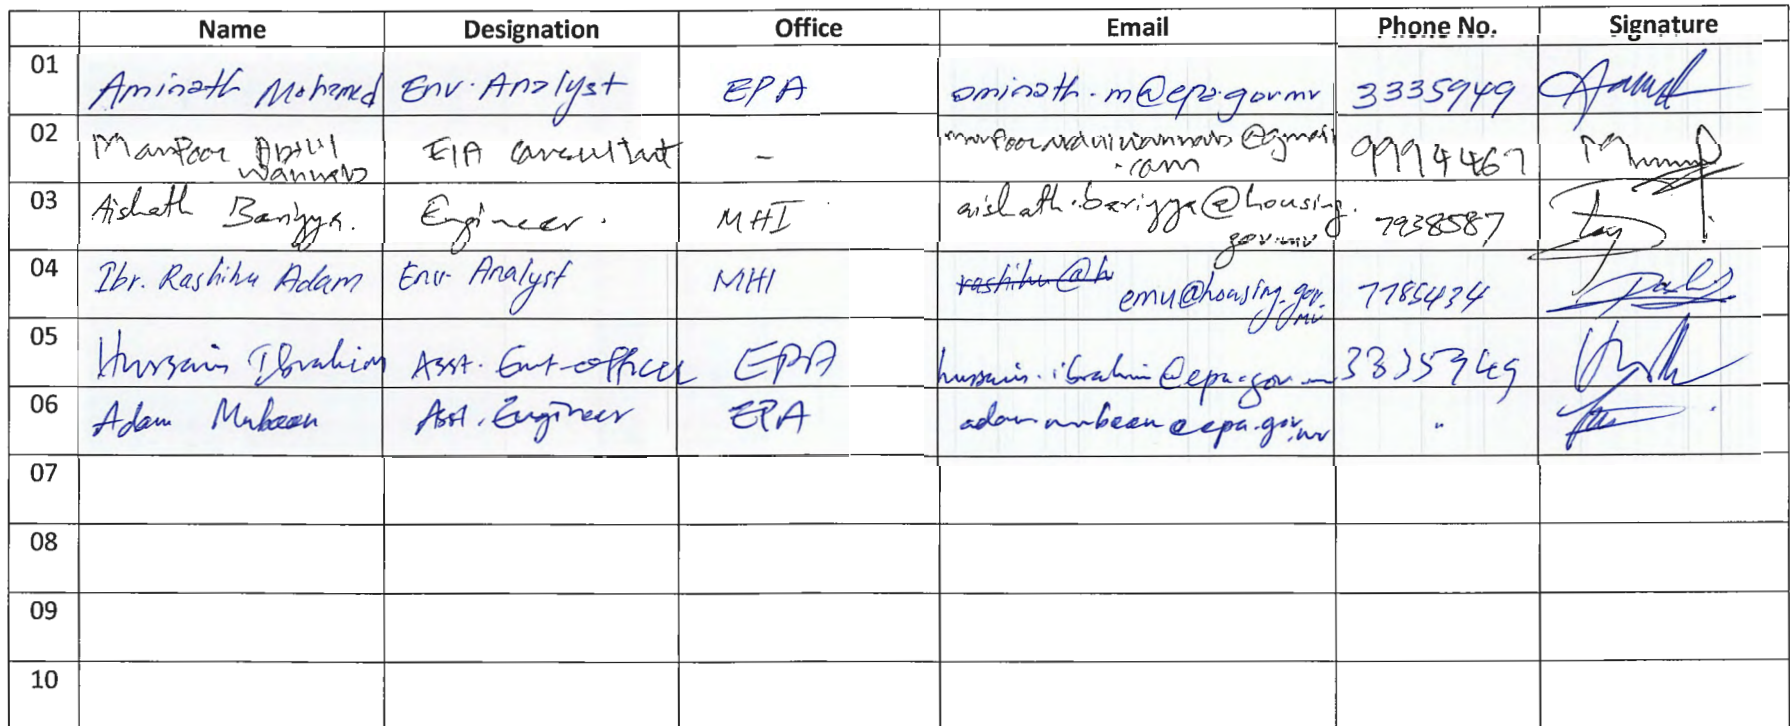 Name Designation Office Email Phone No. Signature
01 Aminath Mohamed Env. Analyst EPA aminath.m@epa.gov.mv 3335949
02 EIA Consultant - @gmail 9994467
.com
03 Aishath Bariyya. Engineer. MHI aishath.bariyya@housing. 7938587
gov.mv
04 Ibr. Rashihu Adam Env Analyst MHI rashihu@h emu@housing.gov. 7785434
mv
05 Hussain Ibrahim Asst. Env-officer EPA hussain.ibrahim@epa.gov.mv 3335949
06 Adam Mubeen Asst. Engineer EPA adam.mubeen@epa.gov.mv "
07
08
09
10